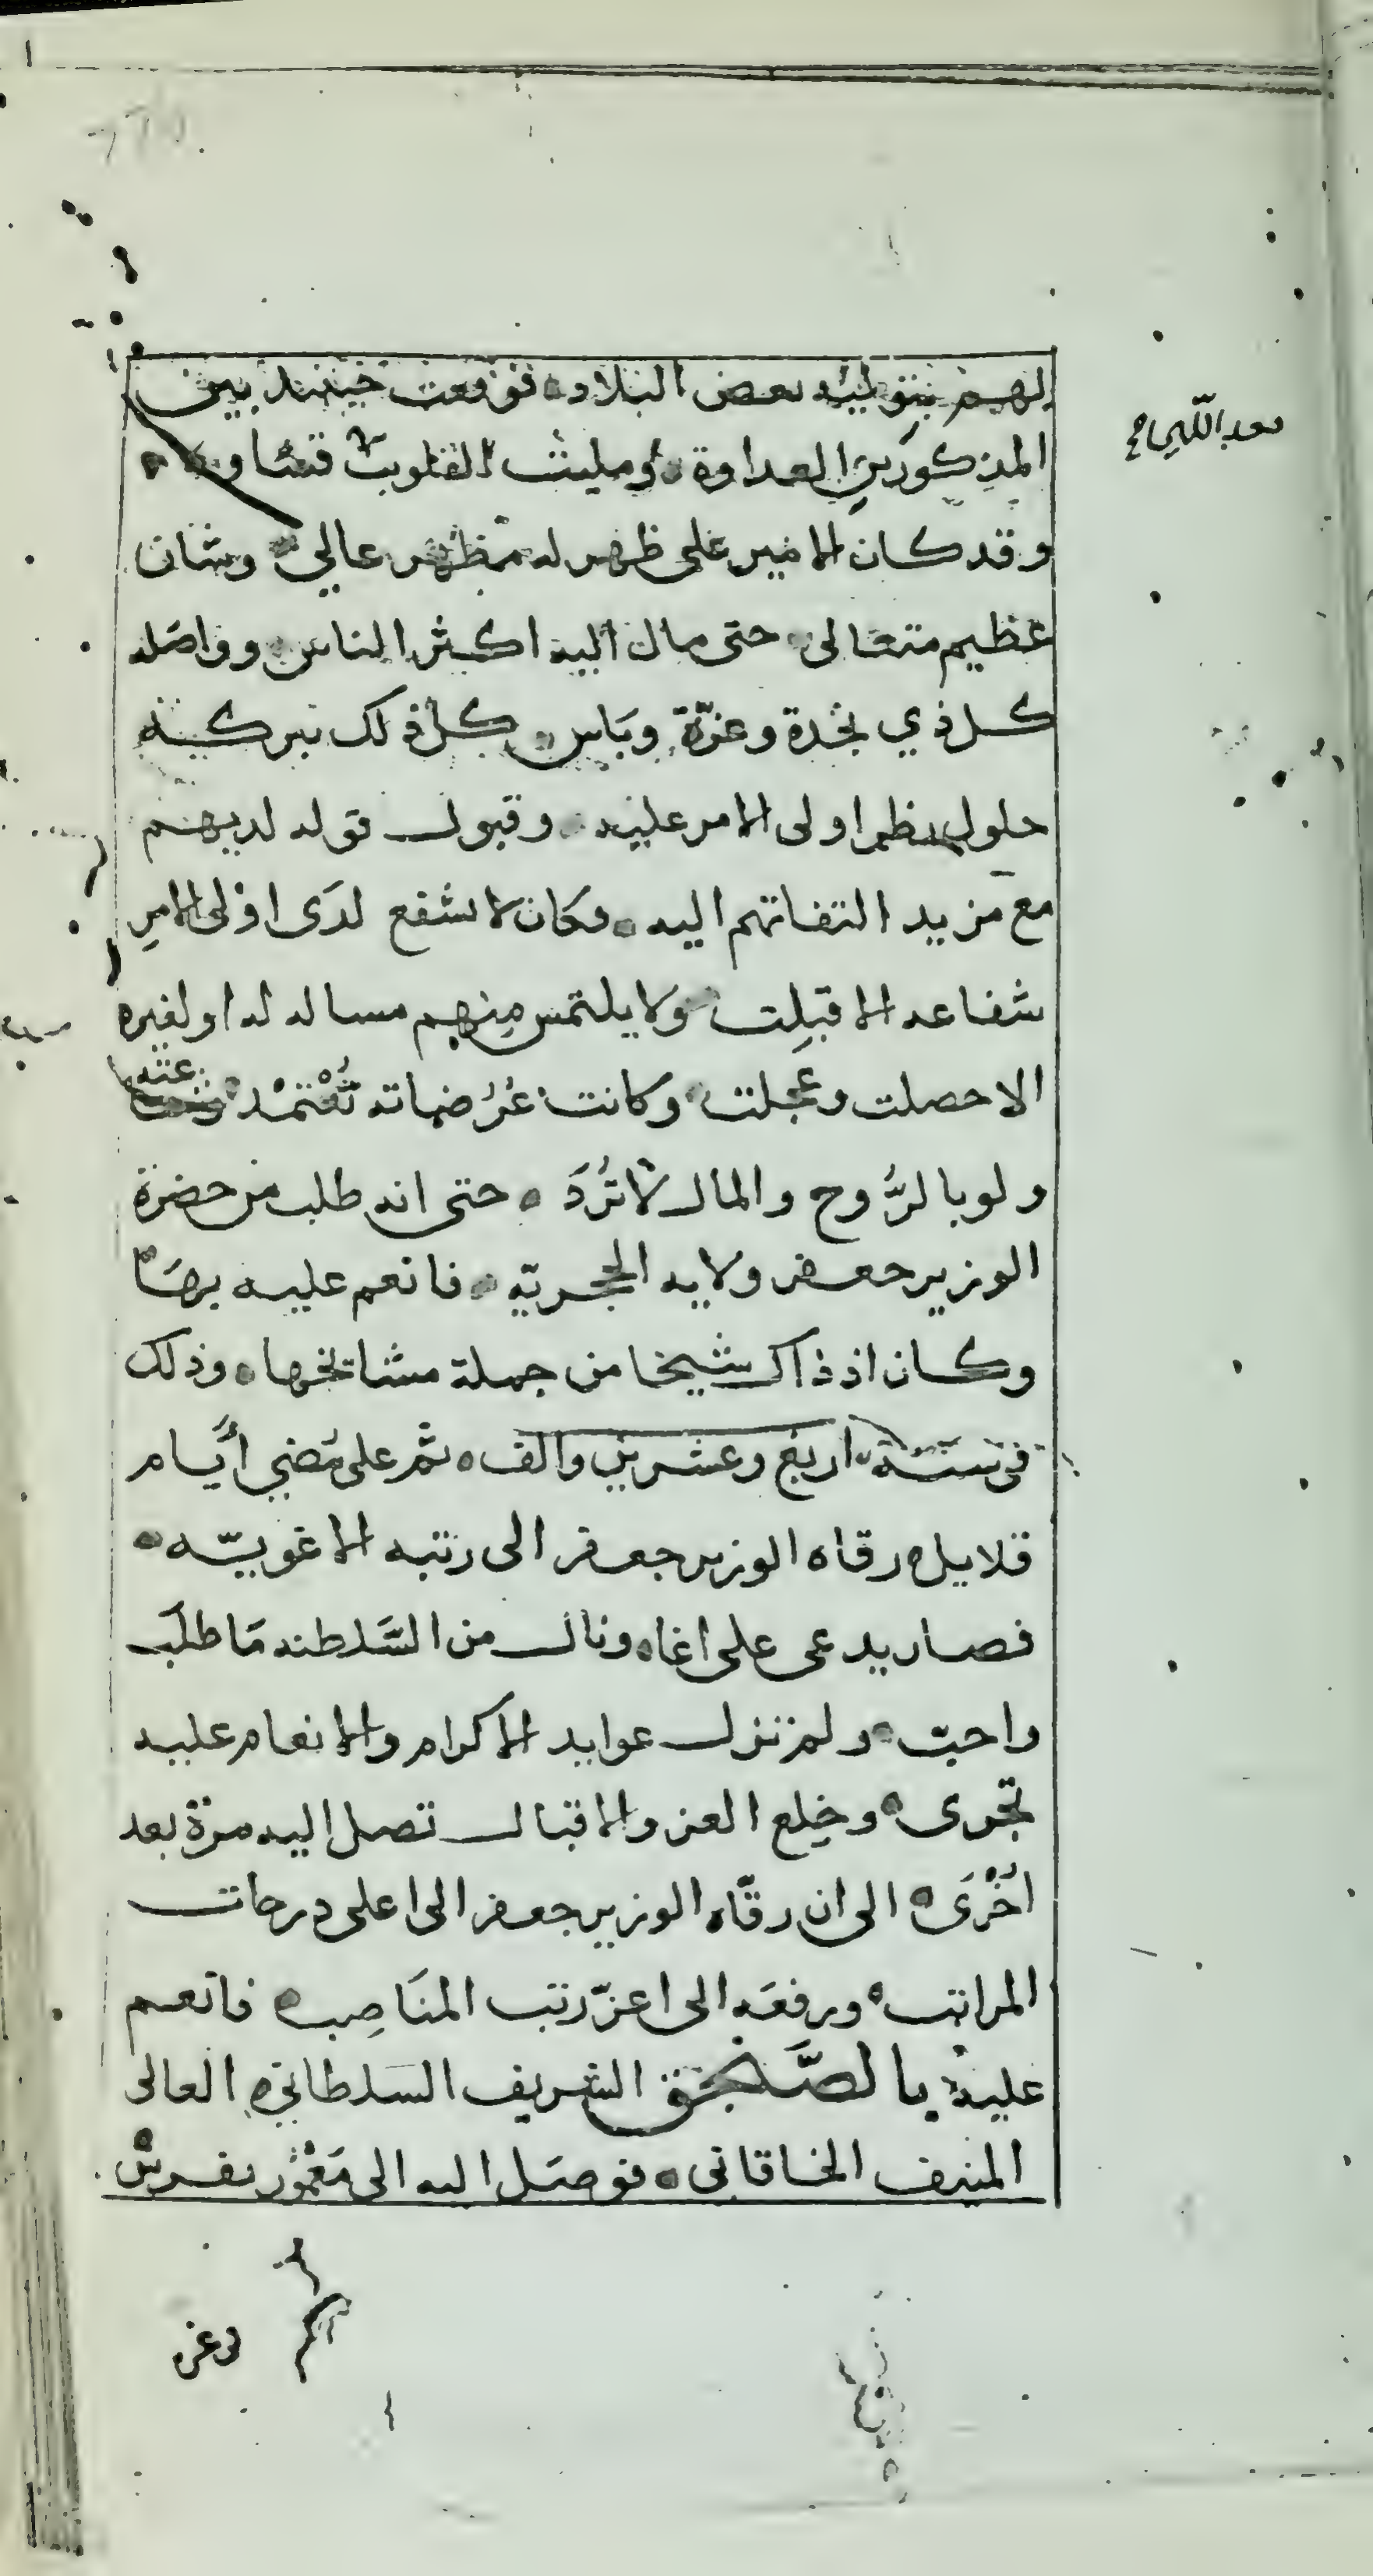 لهم بتوليه بعض البلاد فوقعت حينئذ بين
المذكورين العداوة ومليت القلوب قساوة
وقد كان الامير علي ظهر له مظهر عالي وشان
عظيم متعالى حتى مال اليه اكثر الناس وواصله
كل ذي نجدة وعزّة وباس كل ذلك ببركة
حلول نظر اولى الامر عليه وقبول قوله لديهم
مع مزيد التفاتهم اليه وكان لا يشفع لدى اولى الامر
شفاعه الا قبلت ولا يلتمس منهم مساله له او لغيره
الا حصلت وعجلت وكانت عُرُضاته تُعْتَمَدْ
ولو بالرُّوح والمال لا تُرَدّ حتى انه طلب من حضرة
الوزير جعفر ولايه الحجريّه فانعم عليه بهَا
وكان اذ ذاك شيخا من جملة مشايخها وذلك
في سنة اربع وعشرين والف ثم على مُضي أيَّام
قلايل رقاه الوزير جعفر الى رتبه الاغويّه
فصار يدعى على اغا ونال من السَّلطنه مَا طلبَ
واحبّ ولم تزل عوايد الاكرام والانعام عليه
تجرى وخِلع العز والاقبال تصل اليه مرّة بعد
اُخْرَى الى ان رقّاه الوزير جعفر الى اعلى درجات
المراتب ورفعَه الى اعزّ رتب المنَاصِب فانعم
عليه بالصَّنجق الشريف السلطاني العالى
المنيف الخاقانى فوصَل اليه الى مَعْمُور يفرس
وعز